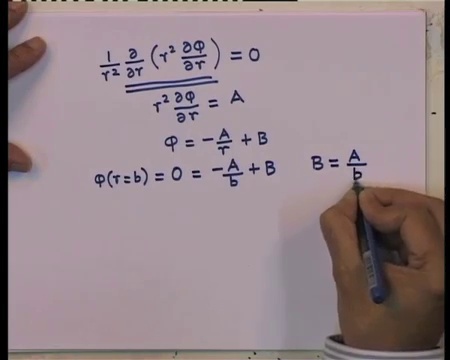 1/r² ∂/∂r (r² ∂φ/∂r) = 0
r² ∂φ/∂r = A
φ = -A/r + B
φ(r=b) = 0 = -A/b + B    B = A/b